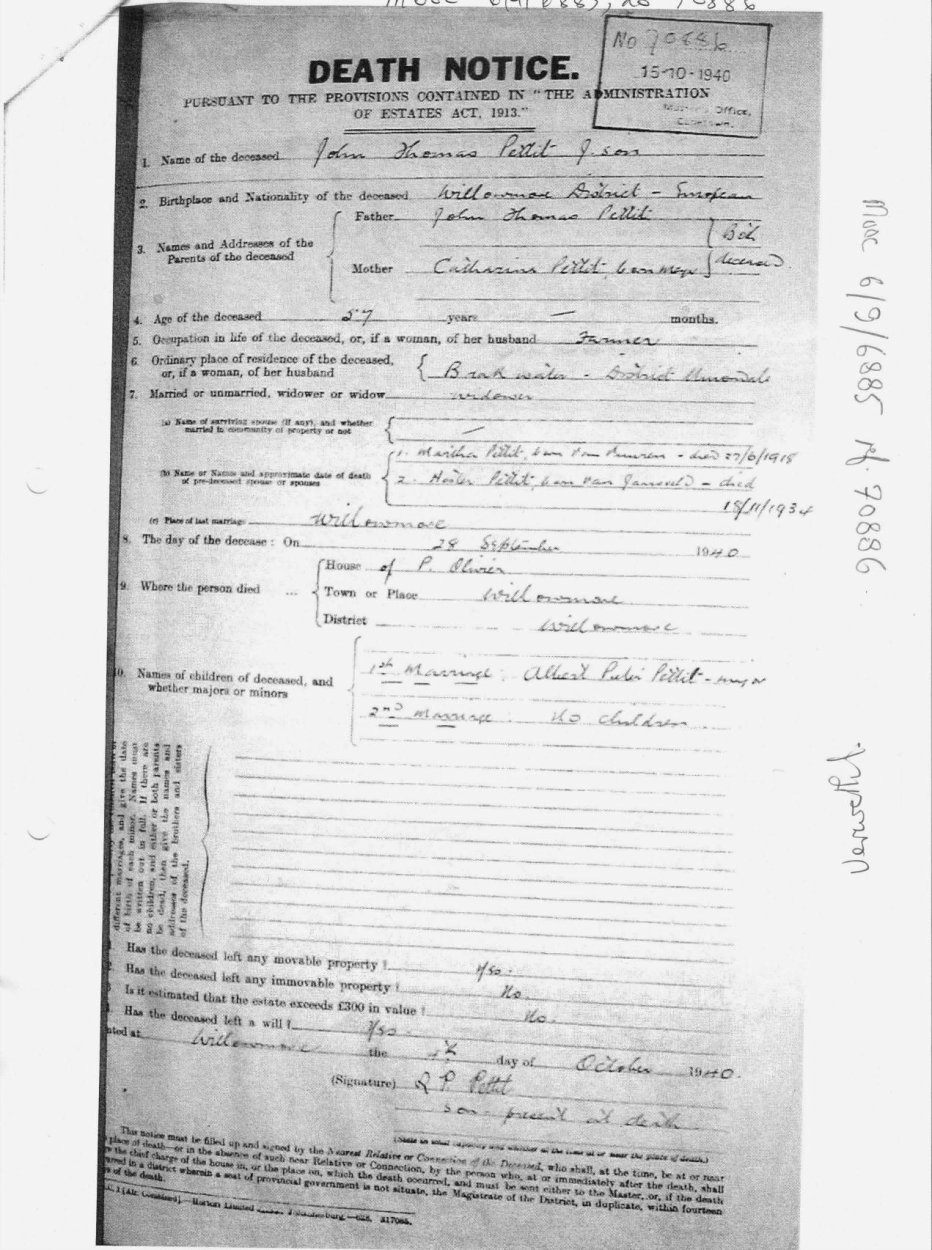 No 70886
15-10-1940
Office,
DEATH NOTICE.
PURSUANT TO THE PROVISIONS CONTAINED IN "THE ADMINISTRATION
OF ESTATES ACT, 1913."
1. Name of the deceased John Thomas Pettit J. son
2. Birthplace and Nationality of the deceased Willowmore District - European
3. Names and Addresses of the Parents of the deceased
Father John Thomas Pettit
Mother Catharina Pettit, born Meyer
Both deceased
4. Age of the deceased 57 years — months.
5. Occupation in life of the deceased, or, if a woman, of her husband Farmer
6. Ordinary place of residence of the deceased, or, if a woman, of her husband
Brakwater - District Uniondale
7. Married or unmarried, widower or widow widower
(a) Name of surviving spouse (if any), and whether married in community of property or not —
(b) Name or Names and approximate date of death of pre-deceased spouse or spouses
1. Martha Pettit, born van Vuuren - died 27/6/1918
2. Hester Pettit, born van Jaarsveld - died
18/11/1934
(c) Place of last marriage Willowmore
8. The day of the decease: On 28 September 1940
9. Where the person died ...
House of P. Olivier
Town or Place Willowmore
District Willowmore
10. Names of children of deceased, and whether majors or minors
1st Marriage: Albert Pieter Pettit - major
2nd Marriage: No children
different marriages, and give the date
of birth of each minor. Names must
be written out in full. If there are
no children, and either or both parents
be dead, then give the names and
addresses of the brothers and sisters
of the deceased.
Has the deceased left any movable property? Yes.
Has the deceased left any immovable property? No.
Is it estimated that the estate exceeds £300 in value? No.
Has the deceased left a will? Yes
ated at Willowmore the day of October 1940.
(Signature) P. Pettit
son - present at death
(State in what capacity and whether at the time at or near the place of death.)
This notice must be filled up and signed by the Nearest Relative or Connection of the Deceased, who shall, at the time, be at or near
place of death—or in the absence of such near Relative or Connection, by the person who, at or immediately after the death, shall
the chief charge of the house in, or the place on, which the death occurred, and must be sent either to the Master, or, if the death
in a district wherein a seat of provincial government is not situate, the Magistrate of the District, in duplicate, within fourteen
s of the death.
Horton Limited Johannesburg
MOOC 6/9/6885 rf. 70886